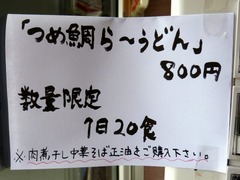 「つめ鯛ら～うどん」
800円
数量限定
1日20食
※肉煮干し中華そば正油をご購入下さい。